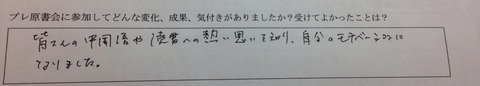 プレ原書会に参加してどんな変化、成果、気付きがありましたか?受けてよかったことは?
皆さんの中国語や読書への熱い思いを知り、自分のモチベーションに
なりました。